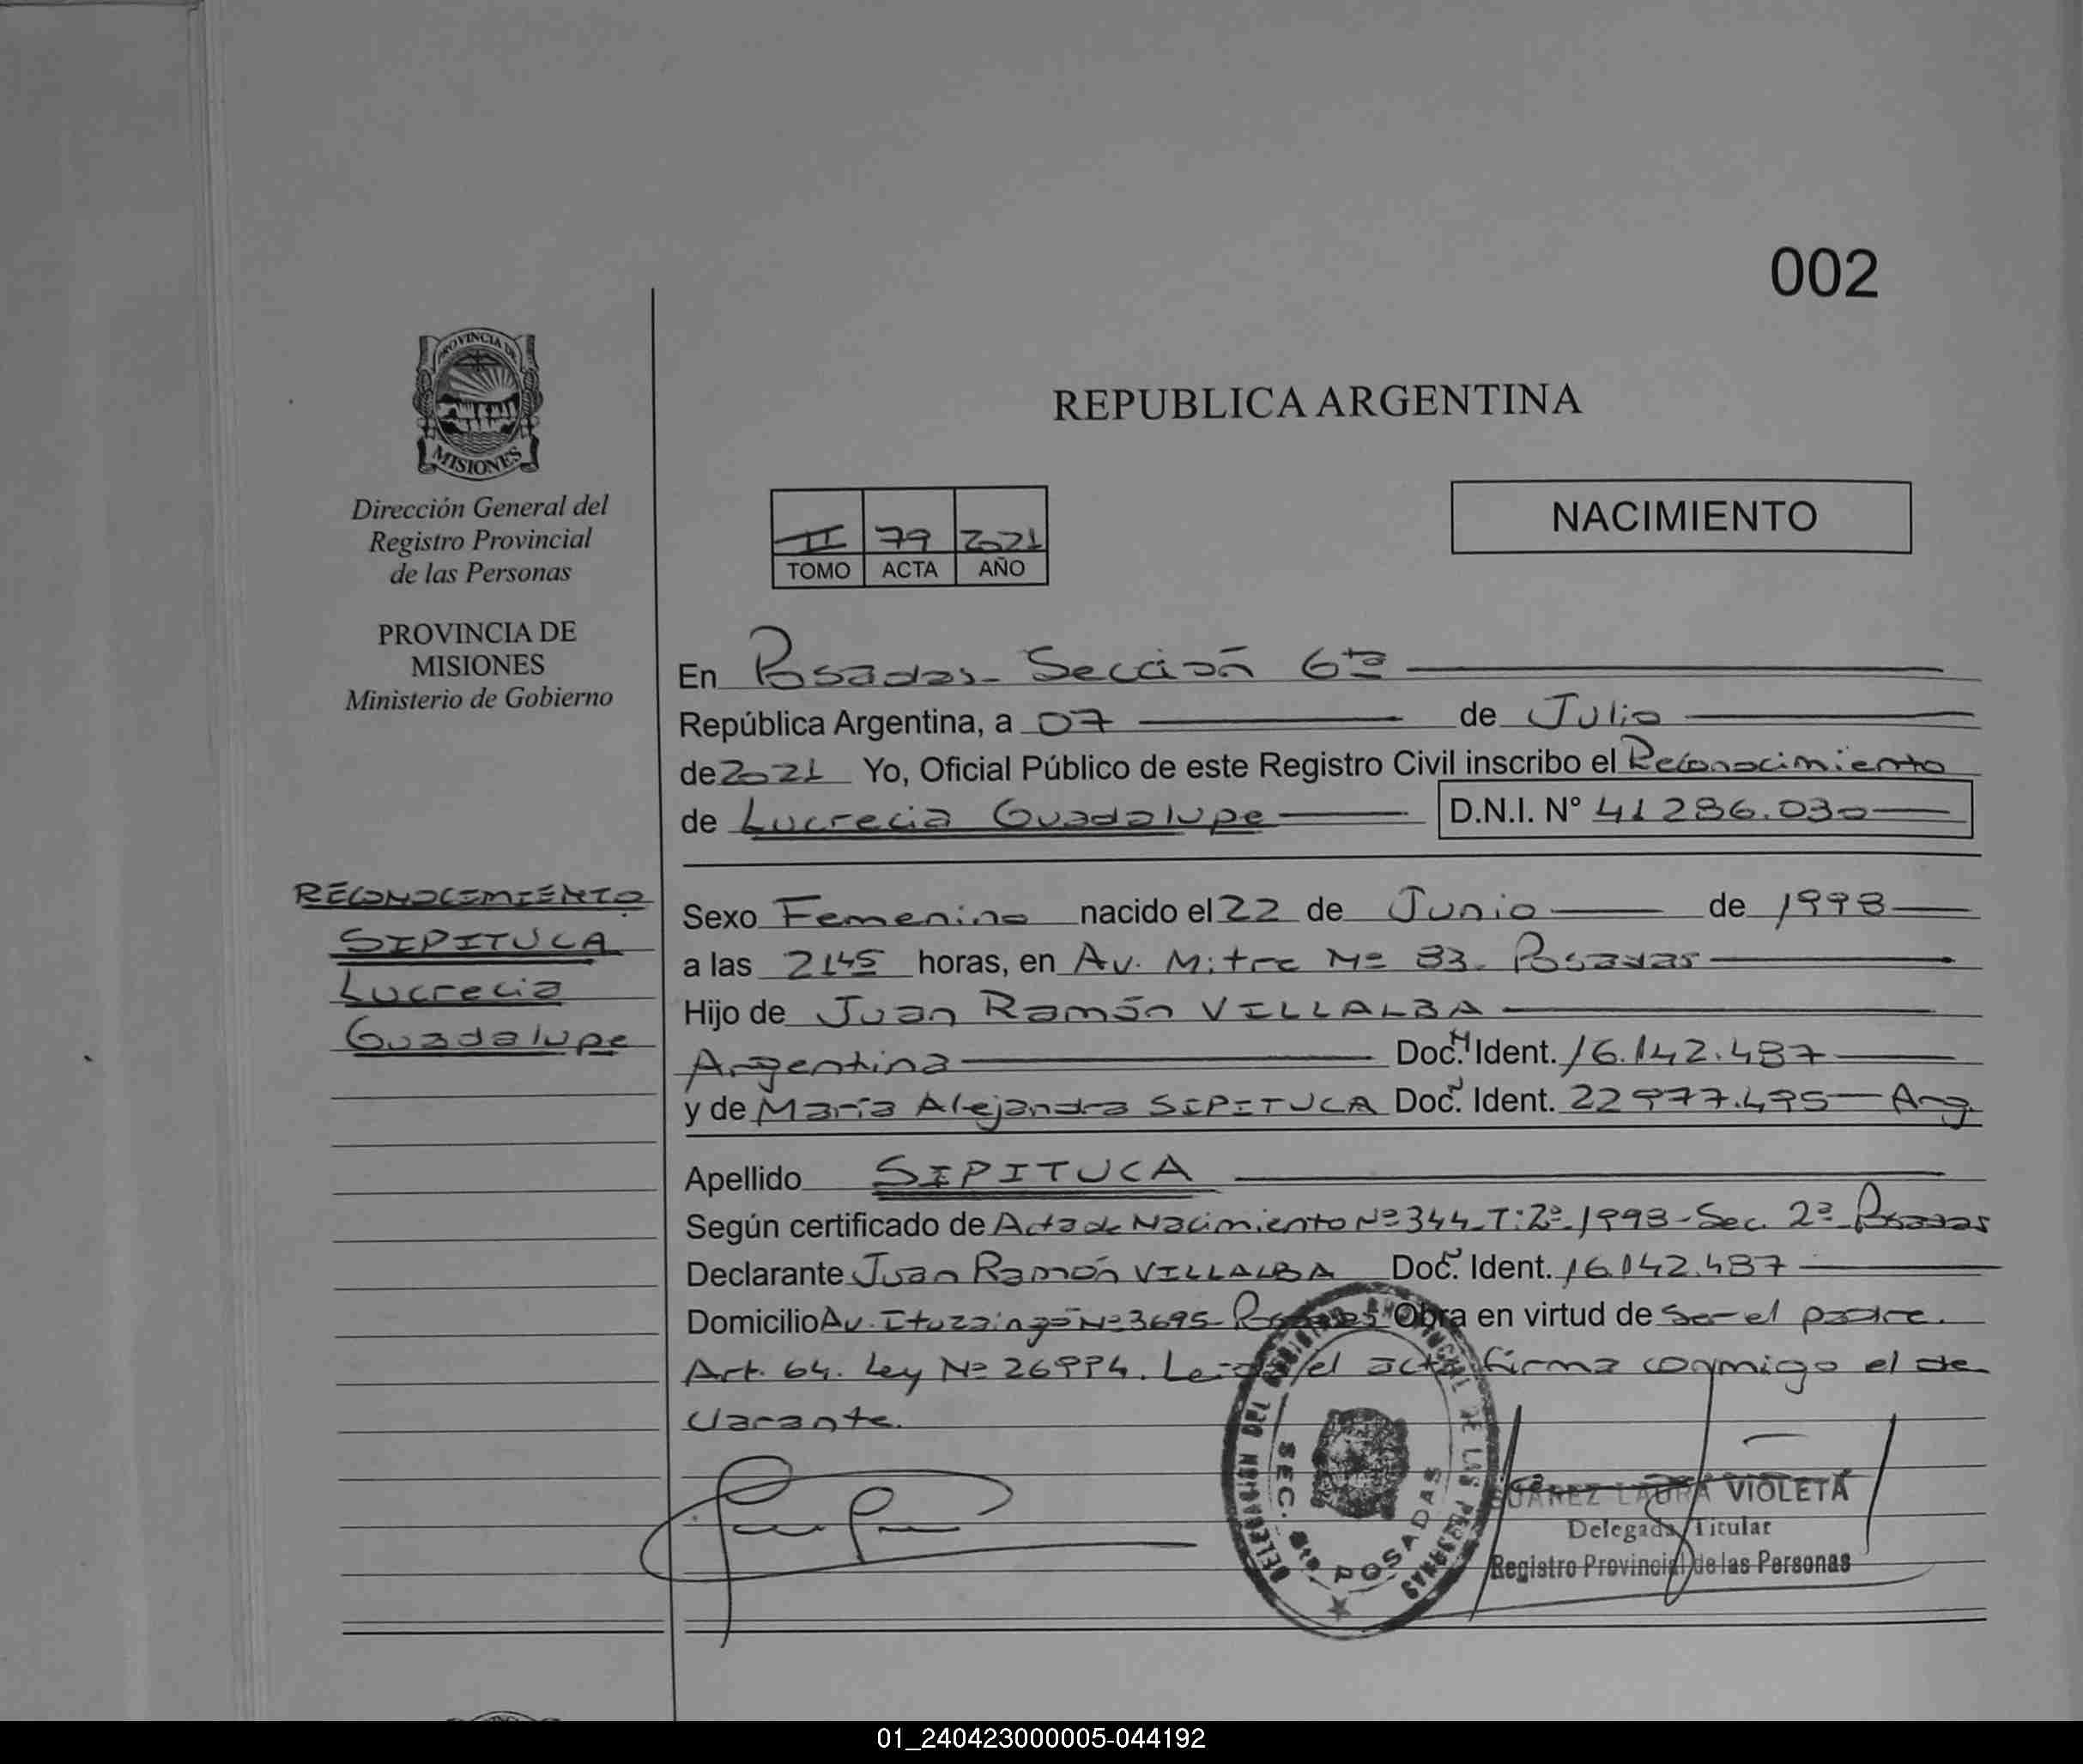 002
PROVINCIA DE
MISIONES
Dirección General del
Registro Provincial
de las Personas
PROVINCIA DE
MISIONES
Ministerio de Gobierno
REPUBLICA ARGENTINA
II 79 2021
TOMO ACTA AÑO
NACIMIENTO
En Posadas - Sección 6ta
República Argentina, a 07 de Julio
de 2021 Yo, Oficial Público de este Registro Civil inscribo el Reconocimiento
de Lucrecia Guadalupe D.N.I. N° 41286.030
RECONOCIMIENTO
SIPITUCA
Lucrecia
Guadalupe
Sexo Femenino nacido el 22 de Junio de 1998
a las 2145 horas, en Av. Mitre Nº 83. Posadas
Hijo de Juan Ramón VILLALBA
Argentina Doc. N Ident. 16.142.487
y de María Alejandra SIPITUCA Doc. N Ident. 22977.495 - Arg.
Apellido SIPITUCA
Según certificado de Acta de Nacimiento Nº 344-T:2º-1998-Sec. 2ª Posadas
Declarante Juan Ramón VILLALBA Doc. N Ident. 16.142.487
Domicilio Av. Ituzaingó Nº 3695- Posadas Obra en virtud de ser el padre.
Art. 64. Ley Nº 26994. Leida el acta firma conmigo el de
clarante.
DELEGACION DEL REGISTRO PROVINCIAL DE LAS PERSONAS
SEC. 6ta. POSADAS
SUAREZ LAURA VIOLETA
Delegada Titular
Registro Provincial de las Personas
01_240423000005-044192